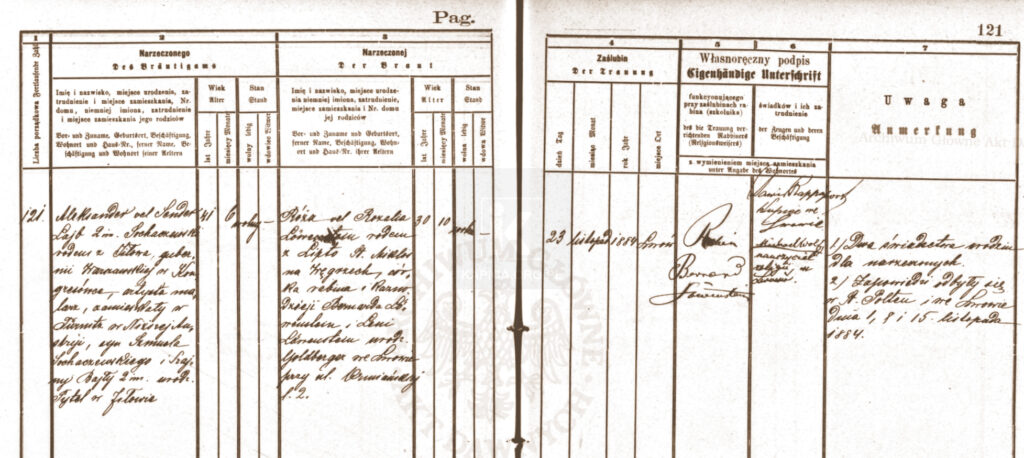 Pag.
121
1
2
3
4
5
6
7
Liczba porządkowa Fortlaufende Zahl
Narzeczonego
Des Bräutigams
Imię i nazwisko, miejsce urodzenia, zatrudnienie
i miejsce zamieszkania, Nr.
domu, niemniej imiona, zatrudnienie
i miejsce zamieszkania jego rodziców
Vor- und Zuname, Geburtsort, Beschäftigung,
Wohnort und Haus-Nr. ferner Name, Beschäftigung
und Wohnort seiner Aeltern
Wiek
Alter
lat Jahre
miesięcy Monate
Stan
Stand
wolny ledig
wdowiec Witwer
Narzeczonej
Der Braut
Imię i nazwisko, miejsce urodzenia
niemniej imiona, zatrudnienie,
i miejsce zamieszkania, Nr. domu
jej rodziców
Vor- und Zuname, Geburtsort,
ferner Name, Beschäftigung, Wohnort
und Haus-Nr. ihrer Aeltern
Wiek
Alter
lat Jahre
miesięcy Monate
Stan
Stand
wolna ledig
wdowa Witwe
Zaślubin
Der Trauung
dzień Tag
miesiąc Monat
rok Jahr
miejsce Ort
Własnoręczny podpis
Eigenhändige Unterschrift
funkcyonującego
przy zaślubinach rabina
(szkolnika)
des die Trauung verrichtenden
Rabbiners
(Religionsweisers)
świadków i ich zatrudnienie
der Zeugen und deren
Beschäftigung
z wymienieniem miejsca zamieszkania
unter Angabe des Wohnortes
Uwaga
Anmerkung
121.
Aleksander vel Sender
Lajb 2 im. Sochaczewski
rodem z Iłowa, guberni
Warszawskiej w Kongresówce,
artysta malarz,
zamieszkały w
w Niższej Austryi,
syn Szmula
Sochaczewskiego i
Bajły 2 im. urodz.
Tytel w Iłowie
41
6
wolny
—
Róża vel Rozalia
Löwenstein rodem
z Lipto St. Miklos
na Węgrzech, córka
rabina i kaznodzieji
Bernarda Löwenstein
i Leni
Löwenstein urodz.
Goldberger we Lwowie
przy ul. Ormiańskiej
l. 2.
30
10
wolna
—
23
listopad
1884
Lwów
Rabin
Bernard
Löwenstein
Rappaport
we
Lwowie
Michael Wolf
nauczyciel
religii w
Lwowie
1/ Dwa świadectwa urodzin
dla narzeczonych.
2/ Zapowiedzi odbyły się
w St. Pölten i we Lwowie
dnia 1, 8 i 15. listopada
1884.